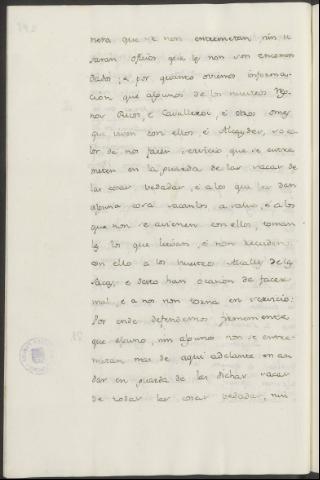 nera que se non entremetan, nin u
saran oficios que les non son encomen
dados; e por quanto ovimos informa-
cion que algunos de los nuestros
nos Ricos, e Cavalleros, e otros omes
que viven con ellos, e Alcaydes, so co
lor de nos facer servicio que se entre
meten en la guarda de las sacas de
las cosas vedadas, e a los que les dan
alguna cosa sacanlos a salvo, e a los
que non se avienen con ellos, toman
les lo que llevan, e non recuden
con ello a los nuestros Alcalles de las
sacas, e desto han ocasion de facer
mal, e a nos non torna en servicio:
Por ende defendemos firmemente
que alguno, nin algunos non se entre-
metan mas de aqui adelante en an
dar en guarda de las dichas sacas
de todas las cosas vedadas, nin